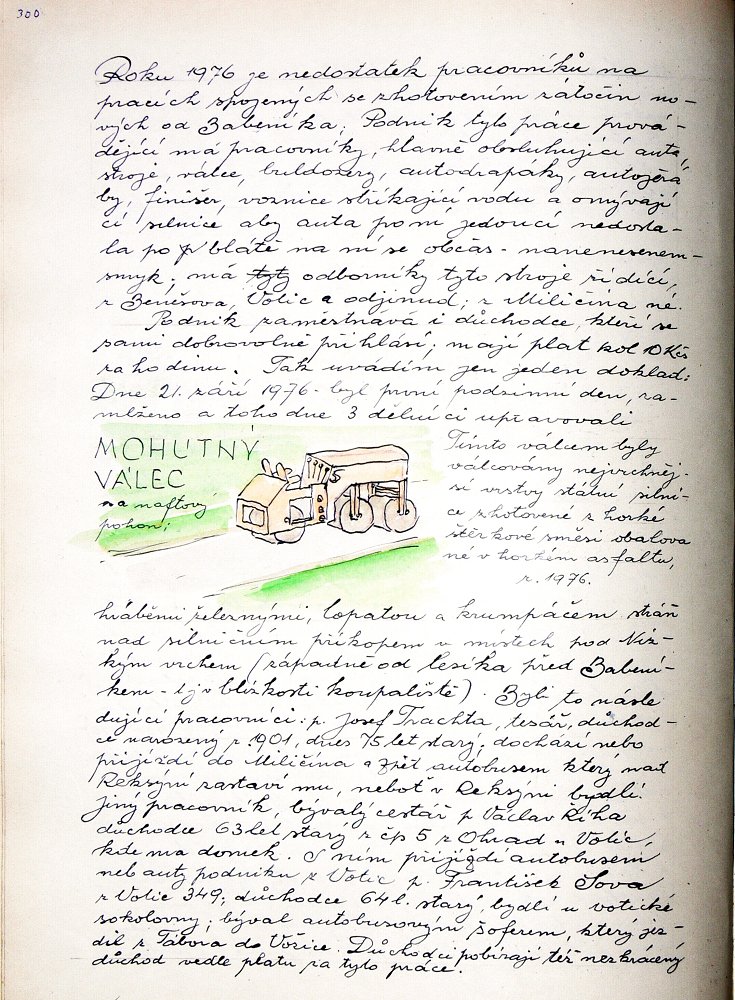 300
Roku 1976 je nedostatek pracovníků na
pracích spojených se zhotovením zátočin no-
vých od Babeníka; Podnik tyto práce prová-
dějící má pracovníky, hlavně obsluhující auta,
stroje, válce, buldozery, autodrapáky, autojeřá
by, finišer, voznice stříkající vodu a omývají
cí silnice aby auta po ní jedoucí nedosta-
la po blátě na ní se občas - naneneseném-
smyk; má tyty odborníky tyto stroje řídící,
z Benešova, Votic a odjinud; z Miličína né.
Podnik zaměstnává i důchodce, kteří se
sami dobrovolně přihlásí; mají plat kol 10 Kčs
za hodinu. Tak uvádím jen jeden doklad:
Dne 21. září 1976 - byl první podzimní den, za-
mlženo a toho dne 3 dělníci upravovali
MOHUTNÝ
VÁLEC
na naftový
pohon;
Tímto válcem byly
válcovány nejvrchněj-
ší vrstvy státní silni-
ce zhotovené z horké
štěrkové směsi obalova
né v horkém asfaltu,
r. 1976.
hráběmi železnými, lopatou a krumpáčem stráň
nad silničním příkopem v místech pod Níz-
kým vrchem (západně od lesíka před Babení-
kem - tj v blízkosti koupaliště). Byli to násle
dující pracovníci: p. Josef Trachta, tesář, důchod-
ce narozený r. 1901, dnes 75 let starý; dochází nebo
přijíždí do Miličína a zpět autobusem který nad
Reksyní zastaví mu, neboť v Reksyni bydlí.
Jiný pracovník, bývalý cestář p Václav Říha
důchodce 63 let starý z čp 5 z Ohrad u Votic,
kde má domek. S ním přijíždí autobusem
neb auty podniku z Votic p. František Sova
z Votic 349; důchodce 64 l. starý bydlí u votické
sokolovny; býval autobusovým šoferem, který jez-
dil z Tábora do Vožice. Důchodci pobírají též nezkrácený
důchod vedle platu za tyto práce.